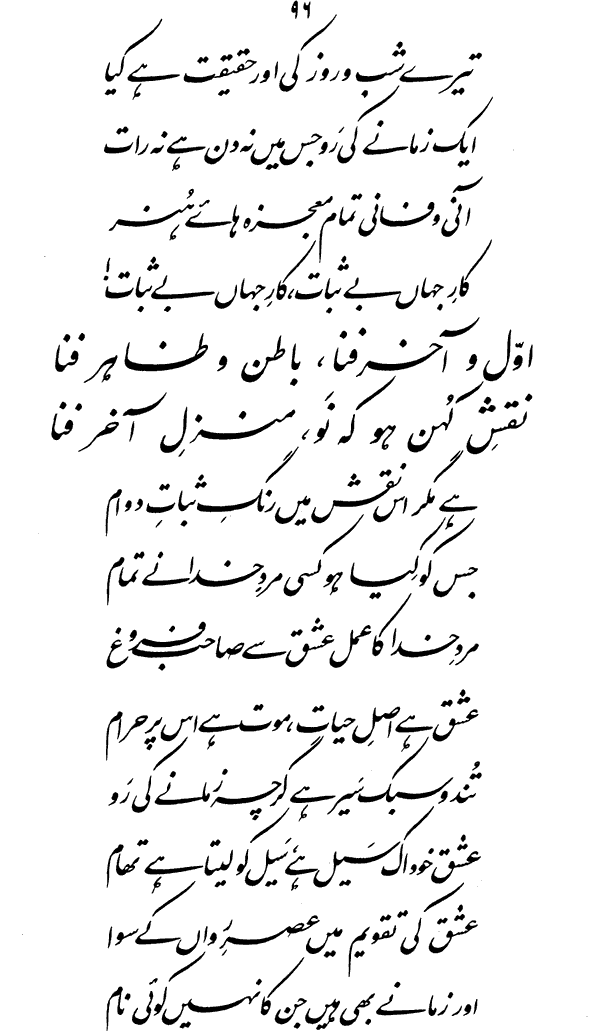 ۹۶
تیرے شب و روز کی اور حقیقت ہے کیا
ایک زمانے کی رَو جس میں نہ دن ہے نہ رات
آنی و فانی تمام معجزہ ہائے ہُنر
کارِ جہاں بے ثبات، کارِ جہاں بے ثبات!
اوّل و آخر فنا، باطن و ظاہر فنا
نقشِ کُہن ہو کہ نَو، منزلِ آخر فنا
ہے مگر اس نقش میں رنگِ ثباتِ دوام
جس کو کِیا ہو کسی مردِ خدا نے تمام
مردِ خدا کا عمل عشق سے صاحب فروغ
عشق ہے اصلِ حیات، موت ہے اس پر حرام
تُند و سبک سَیر ہے گرچہ زمانے کی رَو
عشق خود اک سَیل ہے، سَیل کو لیتا ہے تھام
عشق کی تقویم میں عصرِ رَواں کے سوا
اور زمانے بھی ہیں جن کا نہیں کوئی نام